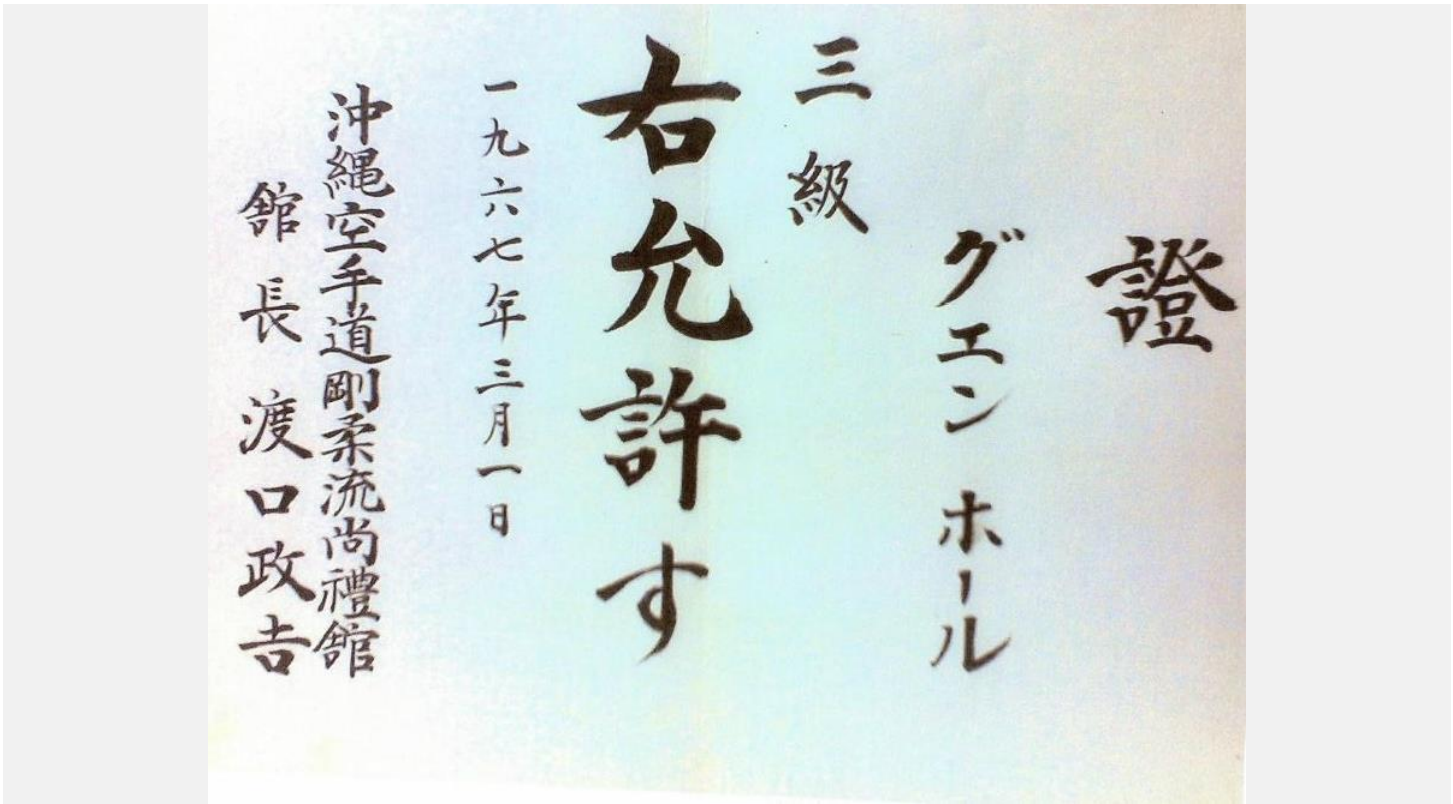 證
グエン ホール
三級
右允許す
一九六七年三月一日
沖縄空手道剛柔流尚禮舘
舘長 渡口政𠮷